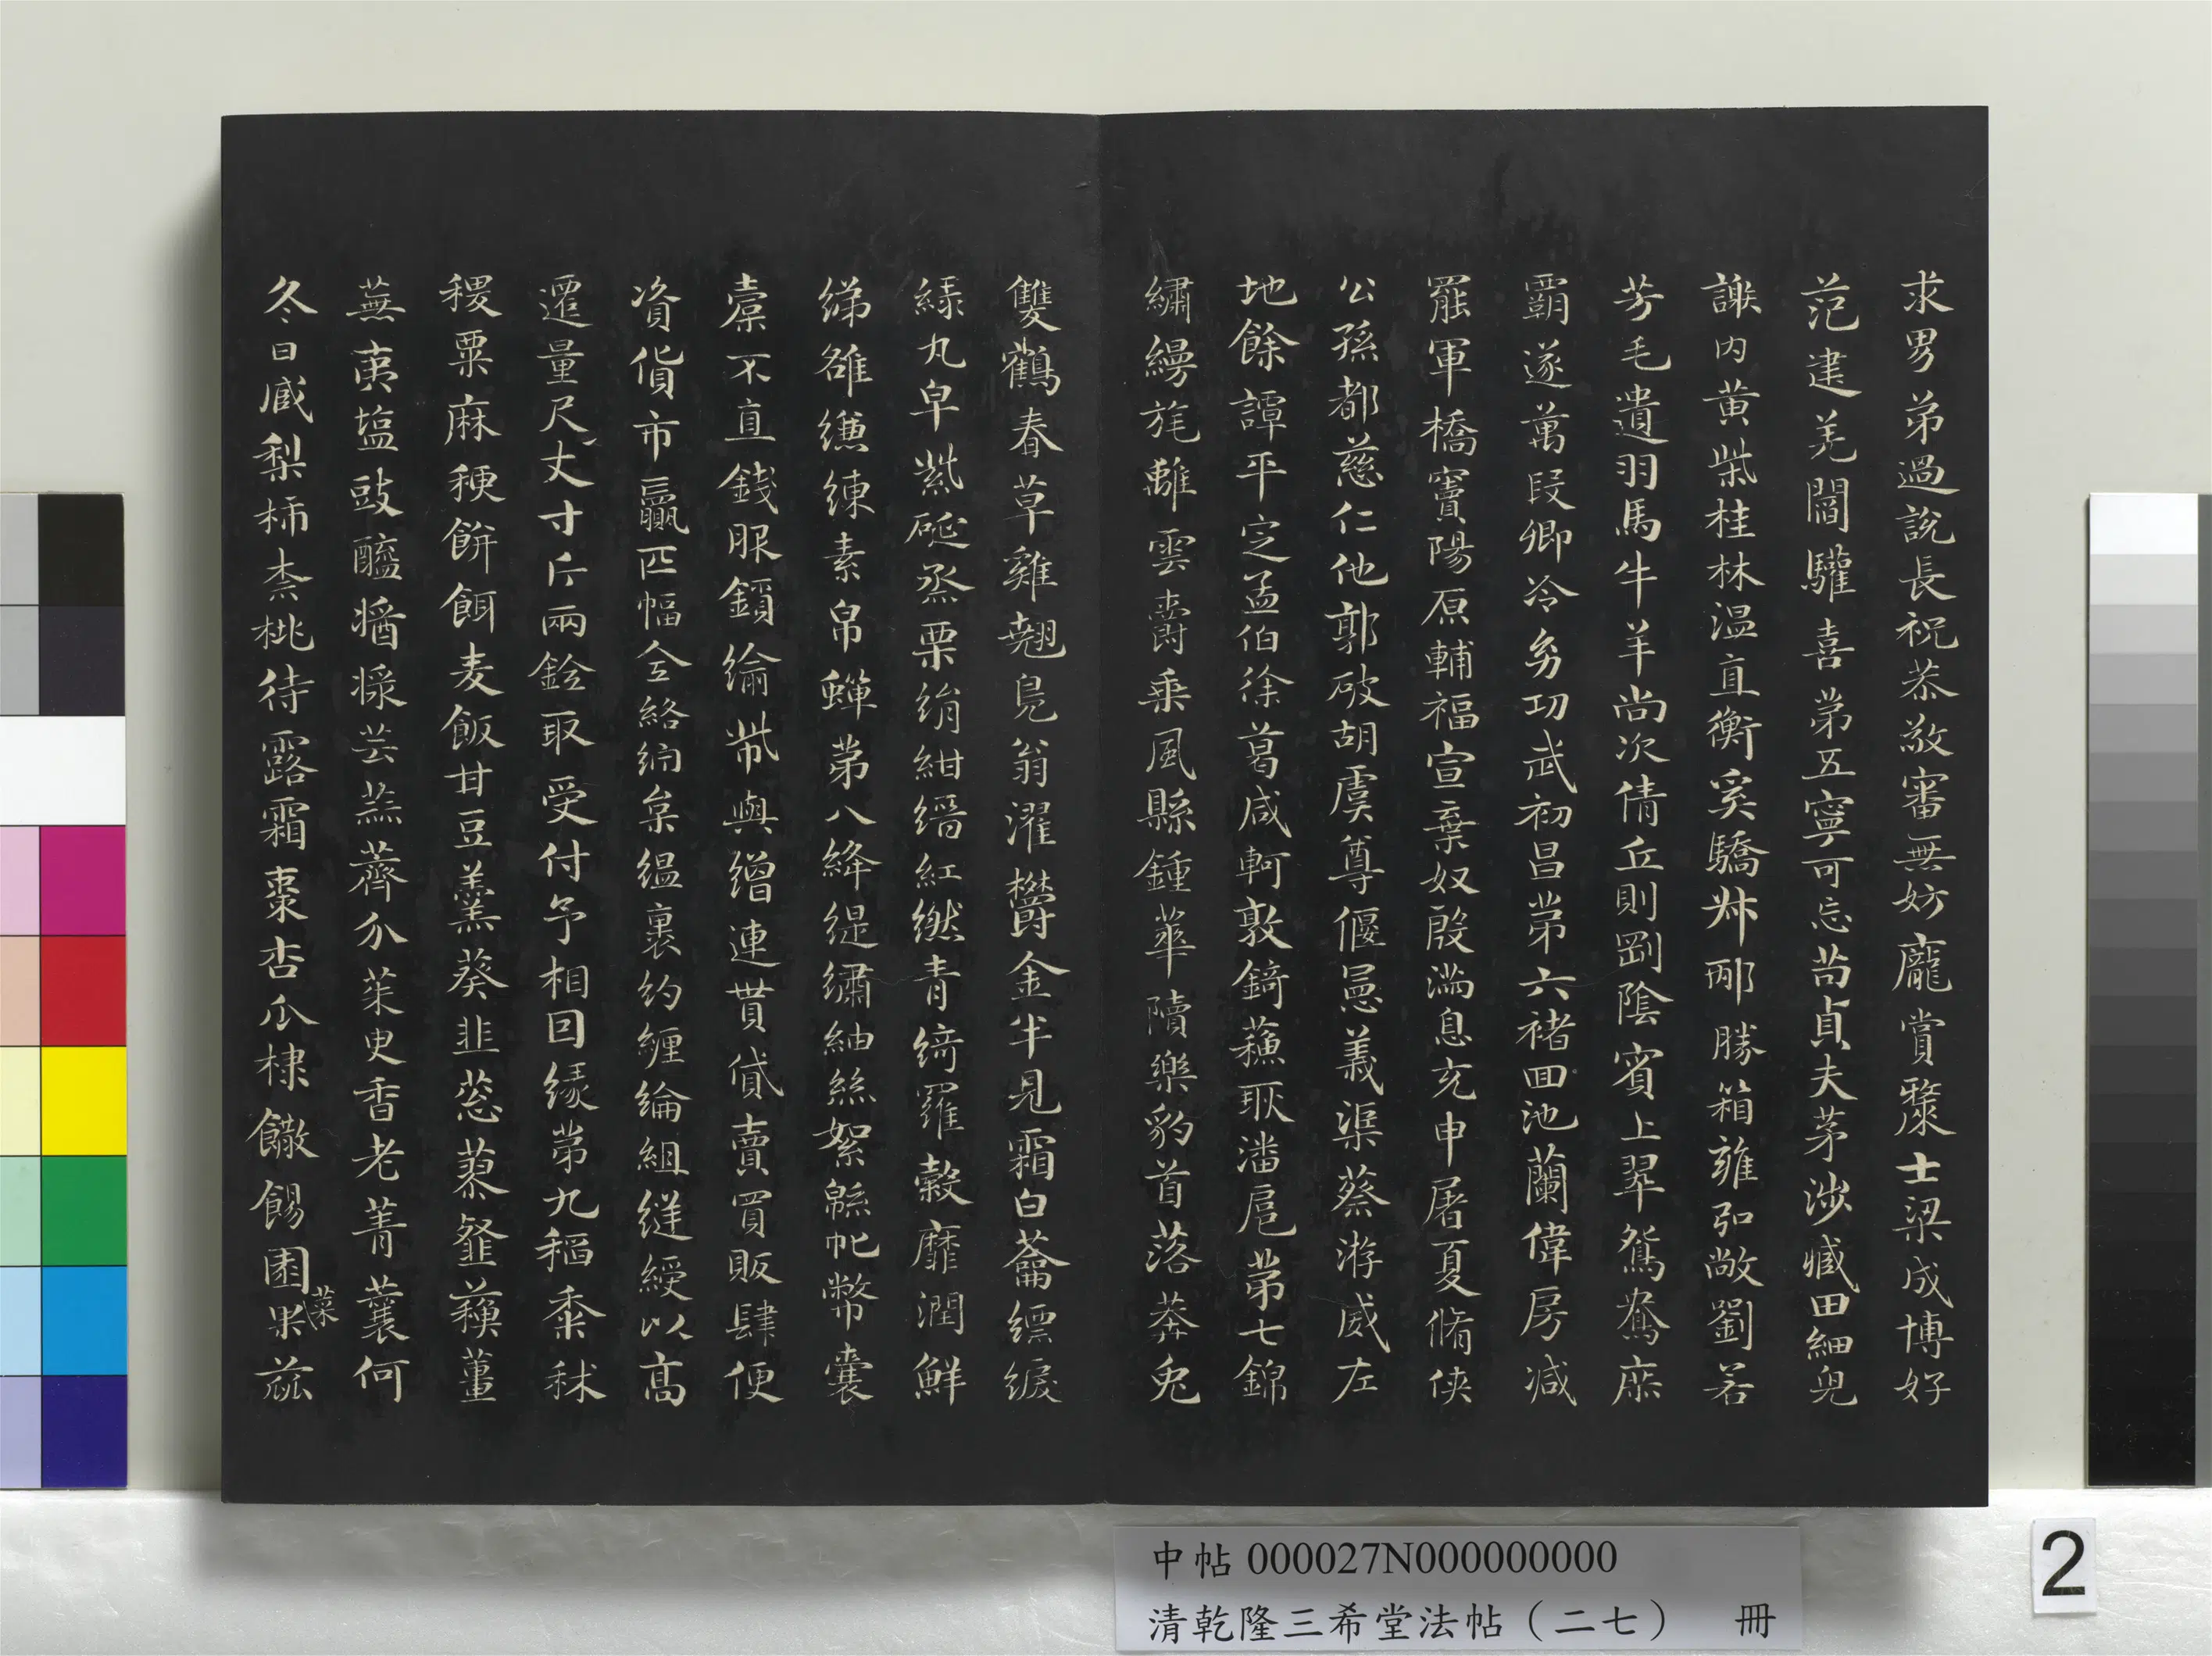 求男弟過說長祝恭敬審無妨龐賞𣯛士梁成博好
范建羌閻驩喜第五寧可忘苟貞夫茅涉臧田細兒
謝內黃柴桂林溫直衡奚驕叔邴勝箱雍弘敞劉若
芳毛遺羽馬牛羊尚次倩丘則劉陰賓上翠鴛鴦庶
霸遂萬段卿冷幼功武初昌第六褚回池蘭偉房減
罷軍橋竇陽原輔福宣棄奴殷滿息充申屠夏脩俠
公孫都慈仁他郭破胡虞尊偃憲義渠蔡游威左
地餘譚平定孟伯徐葛咸軻敦錡蘓耿潘扈第七錦
繡縵旄離雲爵乘風縣鍾華隤樂豹首落莽兔
雙鶴春草雞翹鳧翁濯鬱金半見霜白蘥縹綟
綠丸皁紫硟烝栗絹紺縉紅繎青綺羅縠靡潤鮮
綈雒縑練素帛蟬第八絳緹繡紬絲絮緜帊幣囊
槖不直錢服鐨綸帋與繒連貰貸賣買販肆便
資貨市贏匹幅全絡綯枲縕裹約纏綸組縫綬以高
遷量尺丈寸斤兩銓取受付予相回緣第九稻黍秫
稷粟麻稉餅餌麦飯甘豆羹葵韭葱蓼韰蘇薑
蕪荑塩豉醯酱漿芸蒜薺介茱臾香老菁蘘何
冬日臧梨柿柰桃待露霜棗杏瓜棣饊餳園菜果蓏
中帖 000027N000000000
清乾隆三希堂法帖（二七） 冊
2